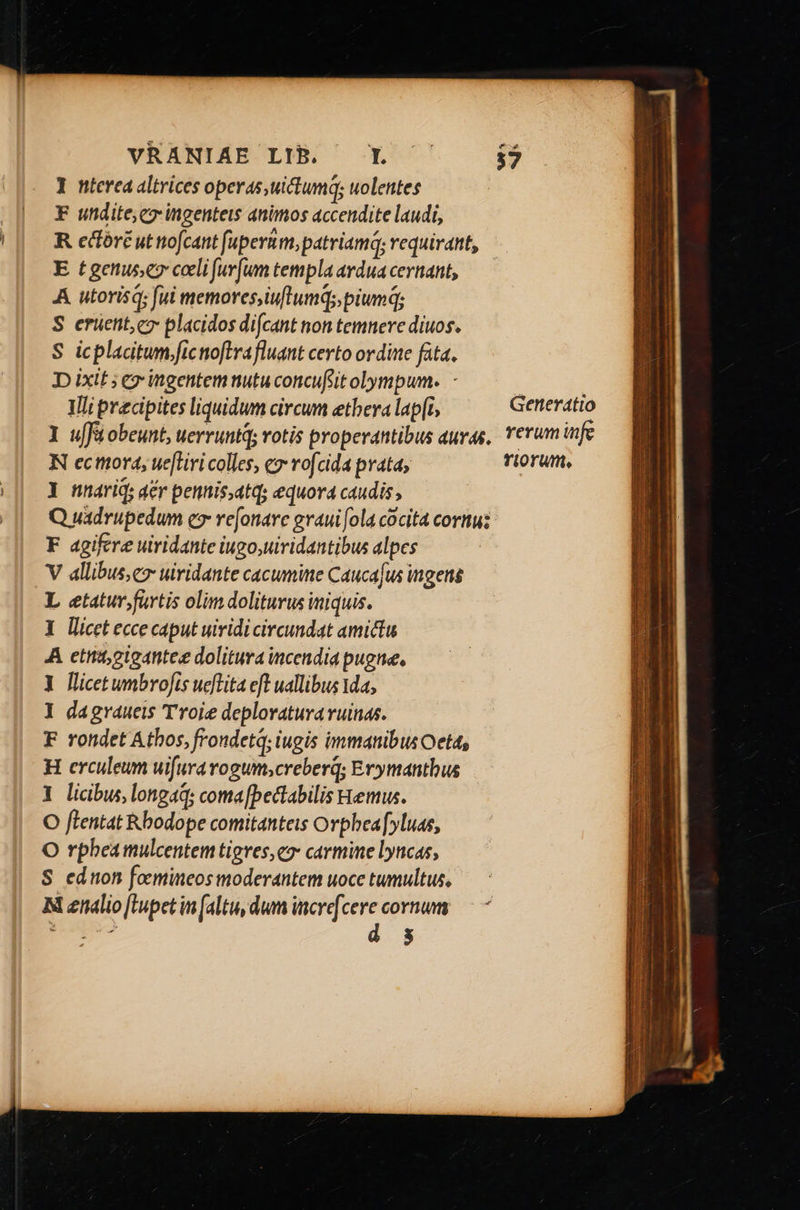 VRANIAE LIB. I. 37
I nterea altrices operas,uictumq́; uolentes
F undite,& ingenteis animos accendite laudi,
R ectorẽ ut noſcant ſuperûm,patriamq́; requirant,
E t genus,& cœli ſurſum templa ardua cernant,
A utorisq́; ſui memores,iuſtumq́;,piumq́;
S eruent,& placidos diſcant non temnere diuos.
S ic placitum.ſic noſtra fluant certo ordine fata.
D ixit; & ingentem nutu concuſsit olympum.
Illi præcipites liquidum circum æthera lapſi,
Generatio
I uſſa obeunt, uerruntq́; rotis properantibus auras.
rerum infe
N ec mora, ueſtiri colles, & roſcida prata,
riorum.
I nnariq́; aër pennis,atq́; æquora caudis,
Q uadrupedum & reſonare graui ſola cõcita cornu:
F agiferæ uiridante iugo,uiridantibus alpes
V allibus,& uiridante cacumine Caucaſus ingens
L ætatur,furtis olim doliturus iniquis.
I llicet ecce caput uiridi circundat amictu
A etna,giganteæ dolitura incendia pugnæ.
I llicet umbroſis ueſtita eſt uallibus Ida,
I da graueis Troiæ deploratura ruinas.
F rondet Athos, frondetq́; iugis immanibus Oeta,
H erculeum uiſura rogum,creberq́; Erymanthus
I licibus, longaq́; coma ſpectabilis Hæmus.
O ſtentat Rhodope comitanteis Orphea ſyluas,
O rphea mulcentem tigres,& carmine lyncas,
S ed non fœmineos moderantem uoce tumultus.
M ænalio ſtupet in ſaltu, dum increſcere cornum
d 3